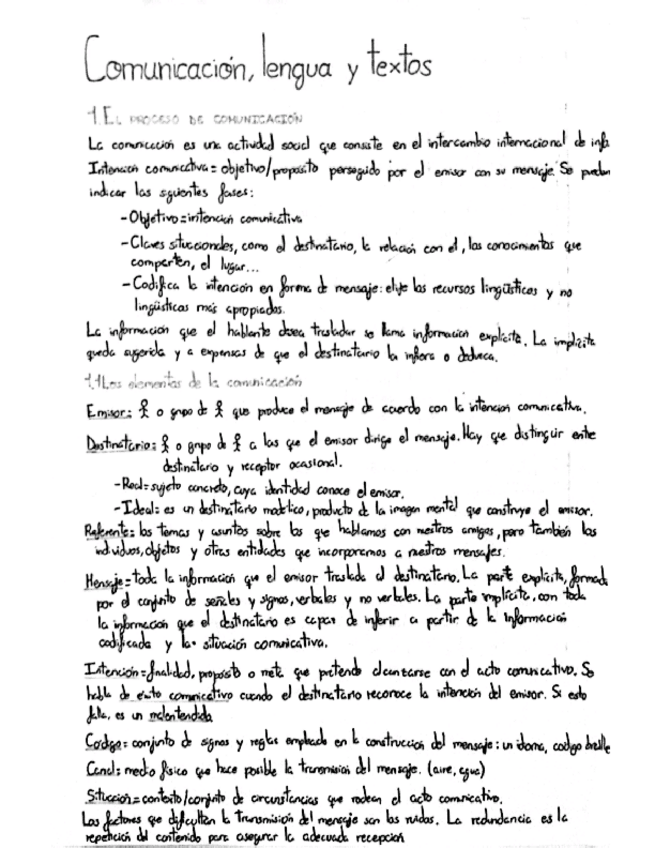 Comunicación, lengua y textos
1. EL PROCESO DE COMUNICACIÓN
La comunicación es una actividad social que consiste en el intercambio internacional de info
Intención comunicativa = objetivo/propósito perseguido por el emisor con su mensaje. Se pueden
indicar las siguientes fases:
- Objetivo = intención comunicativa
- Claves situacionales, como el destinatario, la relación con él, los conocimientos que
comparten, el lugar...
- Codifica la intención en forma de mensaje: elije los recursos lingüísticos y no
lingüísticos más apropiados.
La información que el hablante desea trasladar se llama información explícita. La implícita
queda sugerida y a expensas de que el destinatario la infiera o deduzca.
1.1 Los elementos de la comunicación
Emisor: o grupo de que produce el mensaje de acuerdo con la intención comunicativa.
Destinatario: o grupo de a las que el emisor dirige el mensaje. Hay que distinguir entre
destinatario y receptor ocasional.
- Real = sujeto concreto, cuya identidad conoce el emisor.
- Ideal = es un destinatario modélico, producto de la imagen mental que construye el emisor.
Referente: los temas y asuntos sobre los que hablamos con nuestros amigos, pero también los
individuos, objetos y otras entidades que incorporamos a nuestros mensajes.
Mensaje = toda la información que el emisor traslada al destinatario. La parte explícita, formada
por el conjunto de señales y signos, verbales y no verbales. La parte implícita, con toda
la información que el destinatario es capaz de inferir a partir de la información
codificada y la situación comunicativa.
Intención = finalidad, propósito o meta que pretende alcanzarse con el acto comunicativo. Se
habla de éxito comunicativo cuando el destinatario reconoce la intención del emisor. Si esto
falla, es un malentendido
Código = conjunto de signos y reglas empleado en la construcción del mensaje: un idioma, codigo braille
Canal: medio físico que hace posible la transmisión del mensaje. (aire, agua)
Situación = contexto/conjunto de circunstancias que rodean el acto comunicativo.
Los factores que dificultan la transmisión del mensaje son los ruidos. La redundancia es la
repetición del contenido para asegurar la adecuada recepción